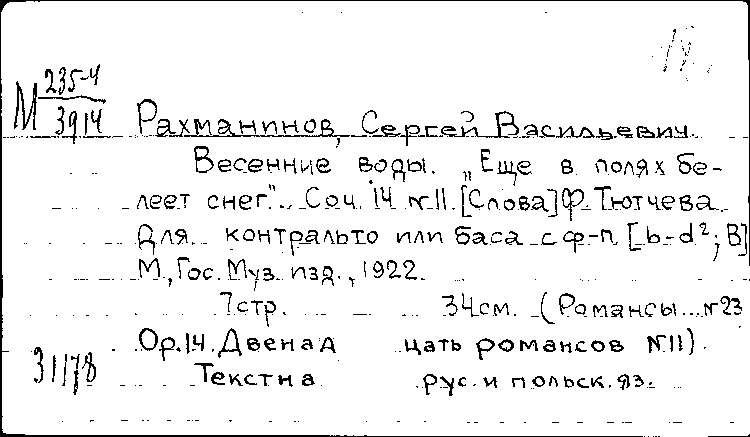 М 235-4
3914
Рахманинов, Сергей Васильевич.
Весенние воды. „Еще в полях бе-
леет снег." Соч. 14 №11. [Слова] Ф. Тютчева.
Для контральто или баса с ф-п [b-d²; B]
М., Гос. Муз. изд., 1922.
7 стр. 34 см. (Романсы №23
Op. 14. Двенад цать романсов №11).
31178
Текст на рус. и польск. яз.